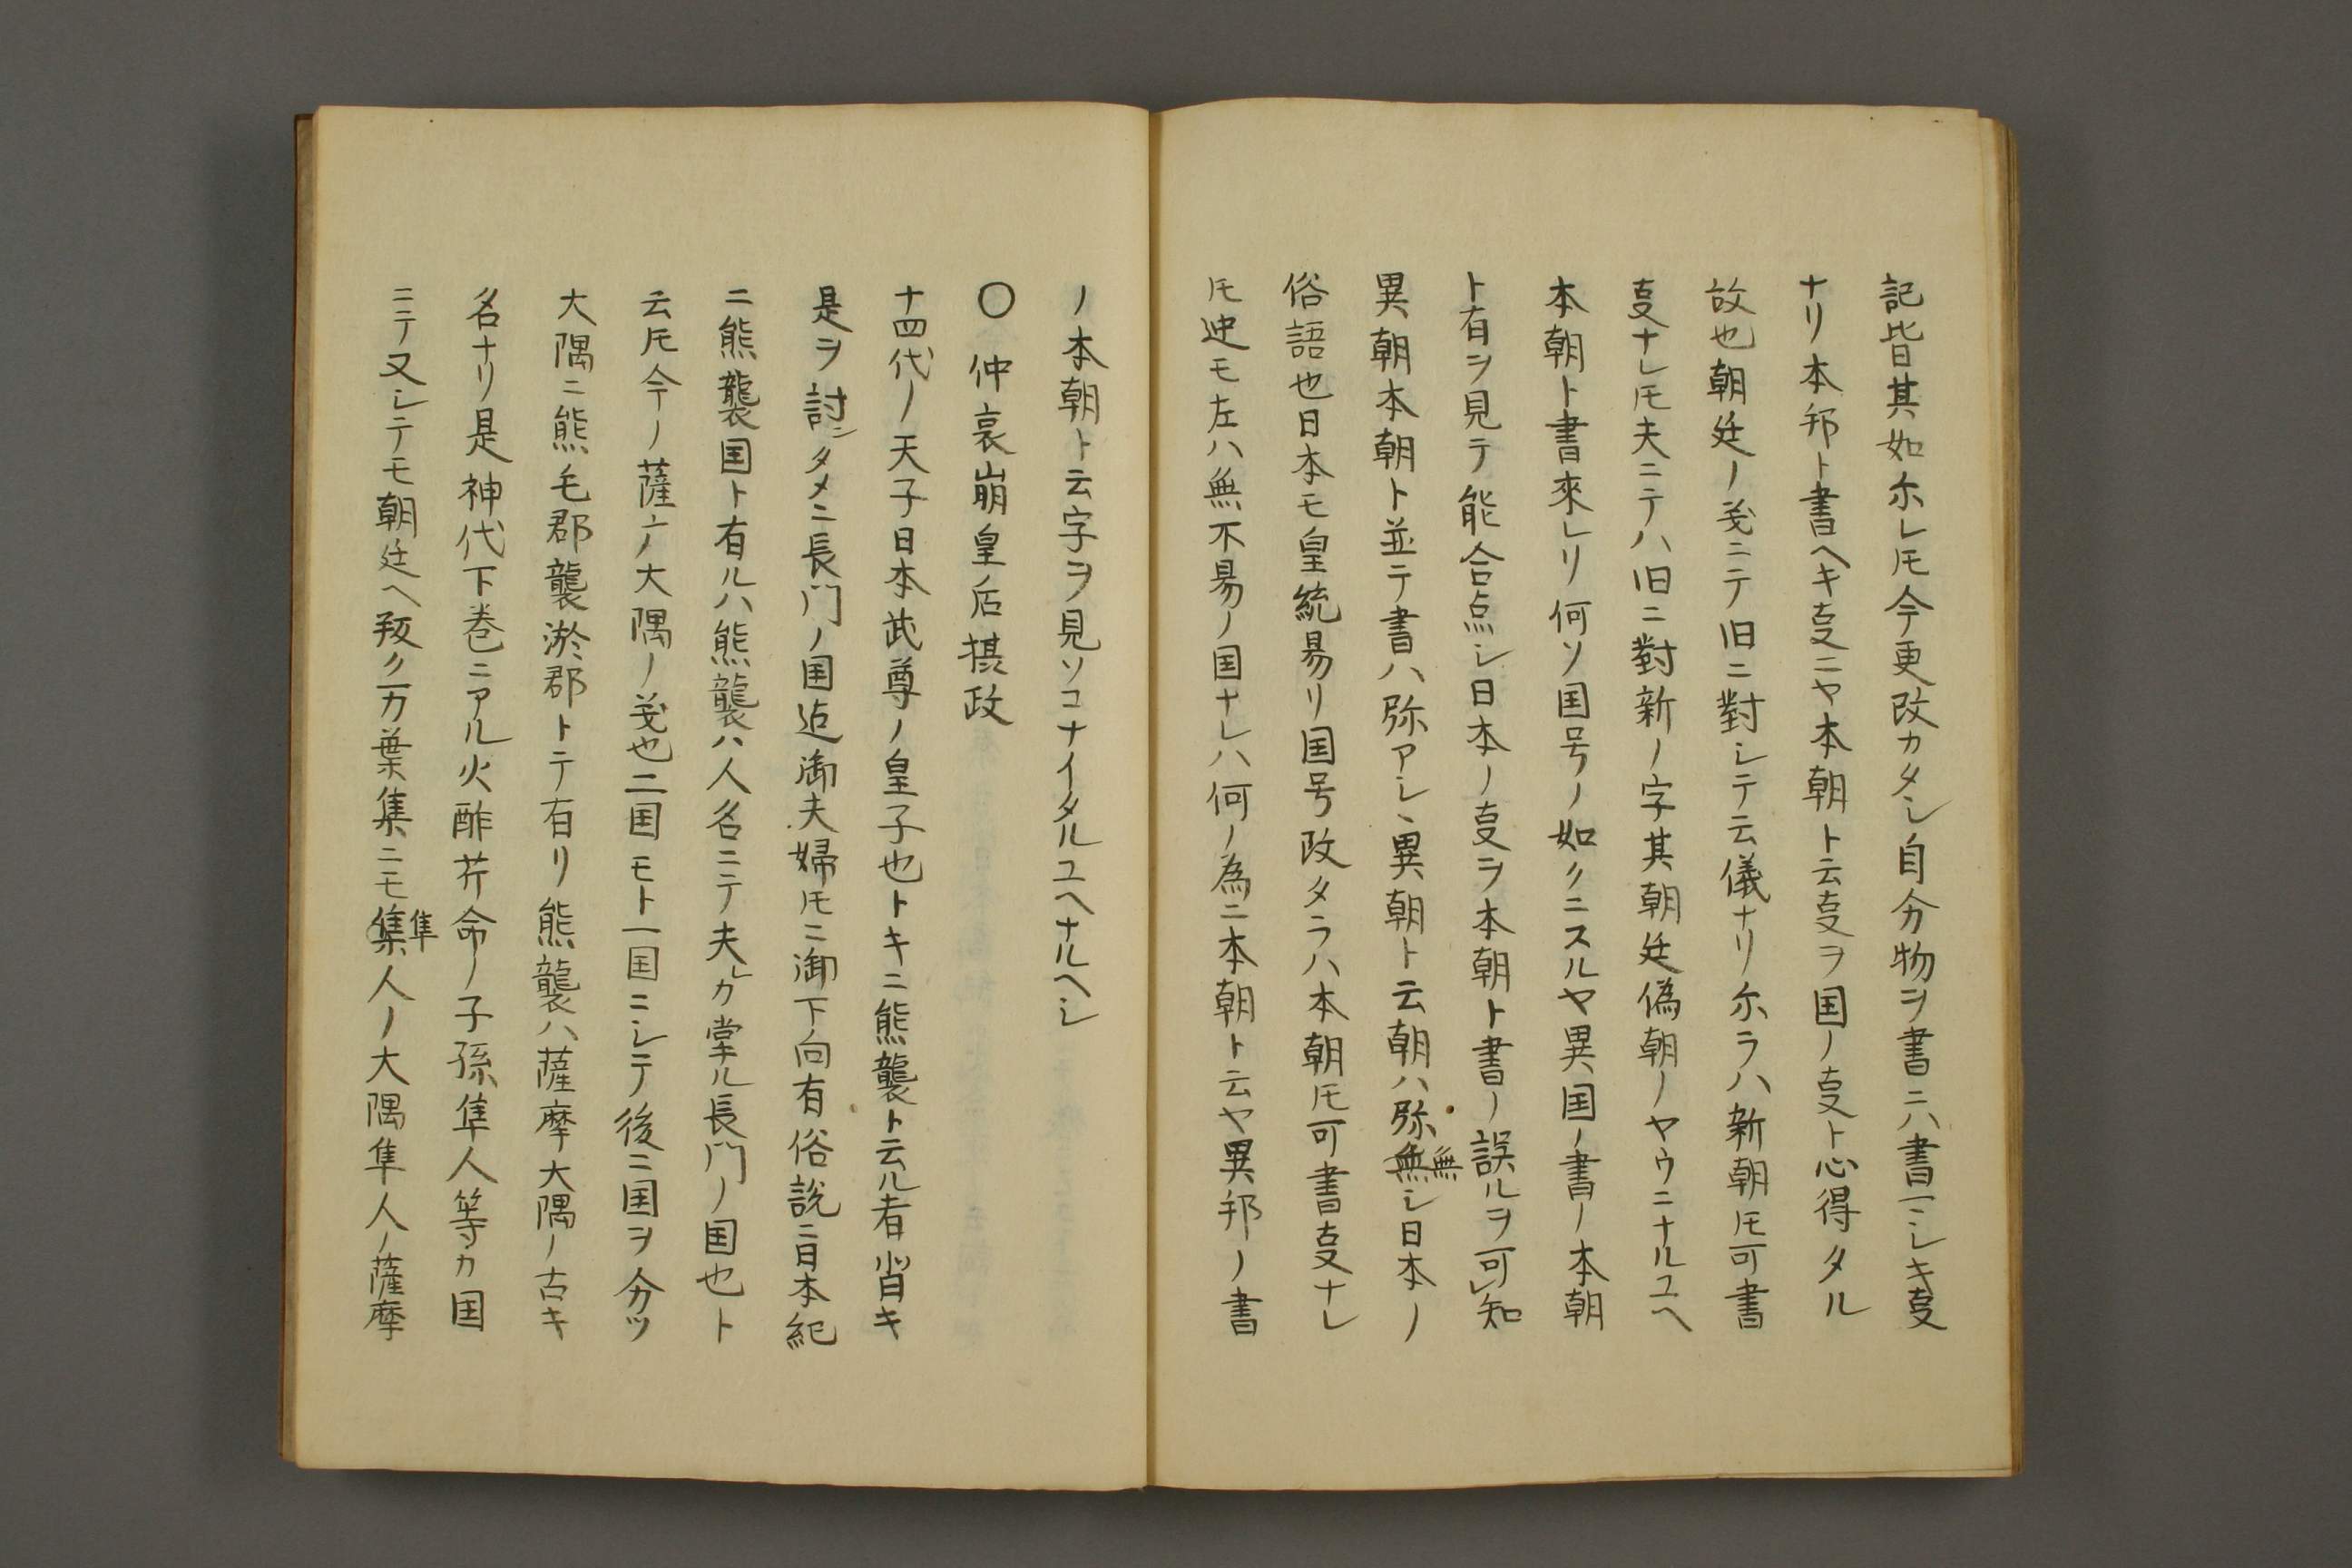 記皆其如尓レ𪜈今更改カタシ自分物ヲ書ニハ書マシキ叓
ナリ本邦ト書ヘキ叓ニヤ本朝ト云叓ヲ国ノ叓ト心得タル
故也朝廷ノ義ニテ旧ニ對シテ云儀ナリ尓ラハ新朝𪜈可書
叓ナレ𪜈夫ニテハ旧ニ對新ノ字其朝廷偽朝ノヤウニナルユヘ
本朝ト書來レリ何ソ国号ノ如クニスルヤ異国ノ書ノ本朝
ト有ヲ見テ能合点シ日本ノ叓ヲ本朝ト書ノ誤ルヲ可レ知
異朝本朝ト並テ書ハ弥アシヽ異朝ト云朝ハ弥無シ日本ノ
俗語也日本モ皇統易リ国号改タラハ本朝𪜈可書叓ナレ
𪜈迚モ左ハ無不易ノ国ナレハ何ノ為ニ本朝ト云ヤ異邦ノ書
ノ本朝ト云字ヲ見ソコナイタルユヘナルヘシ
〇 仲哀崩皇后摂政
十四代ノ天子日本武尊ノ皇子也トキニ熊襲ト云ル者背キ
是ヲ討ンタメニ長門ノ国迠御夫婦𪜈ニ御下向有俗説ニ日本紀
ニ熊襲国ト有ルハ熊襲ハ人名ニテ夫レカ掌ル長門ノ国也ト
云𪜈今ノ薩广大隅ノ義也二国モト一国ニシテ後ニ国ヲ分ツ
大隅ニ熊毛郡襲淤郡トテ有リ熊襲ハ薩摩大隅ノ古キ
名ナリ是神代下巻ニアル火酢芹命ノ子孫隼人等カ国
ニテ又シテモ朝廷ヘ叛ク万葉集ニモ隼人ノ大隅隼人ノ薩摩